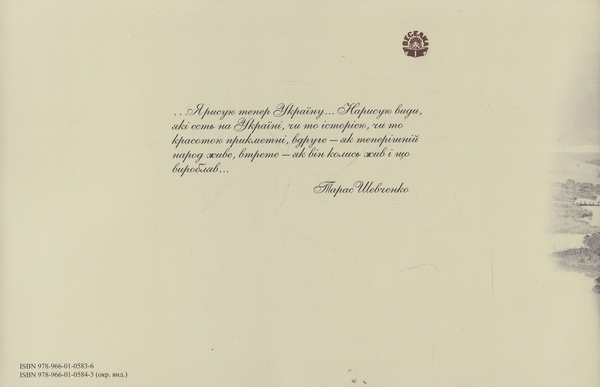 ВЕСЕЛКА
...Я рисую тепер Україну... Нарисую види,
які єсть на Україні, чи то історією, чи то
красотою прикметні, вдруге — як теперішній
народ живе, втретє — як він колись жив і що
виробляв...
Тарас Шевченко
ISBN 978-966-01-0583-6
ISBN 978-966-01-0584-3 (окр. вид.)